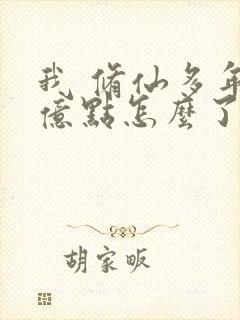 我 脩仙多年
億點怎麼了
胡家畈